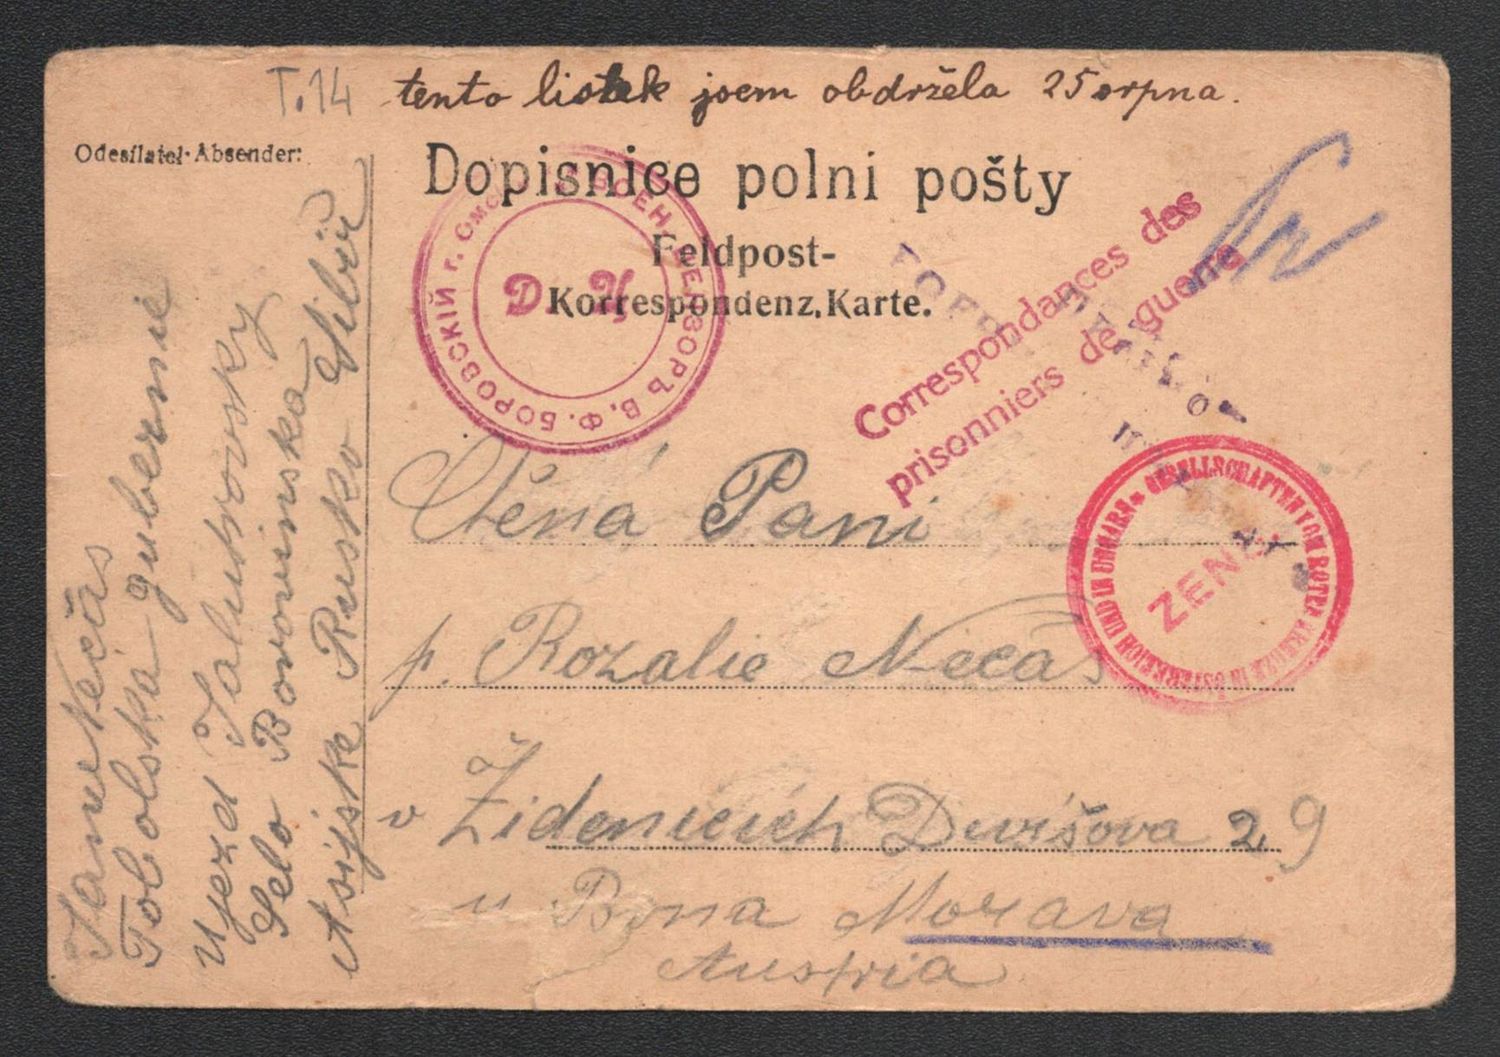 T.14
tento lístek jsem obdržela 25 srpna.
Odesílatel-Absender:
Dopisnice polni pošty
Feldpost-
Korrespondenz.Karte.
ВОЕН. ЦЕНЗОРЪ В. Ф. БОРОВСКІЙ г. Омскъ
Д. Ц
Correspondances des
prisonniers de guerre
GESELLSCHAFTEN VOM ROTEN KREUZE IN ÖSTERREICH UND IN UNGARN
ZENS
Ctěná Pani
p. Rozalie Nečas
v Židenicích Divišova 29
u Brna Morava
Austria
Nečas
Tobolska gubernie
ujezd Jalutrovsky
Selo Borovinska
Asijske Rusko Sibiř